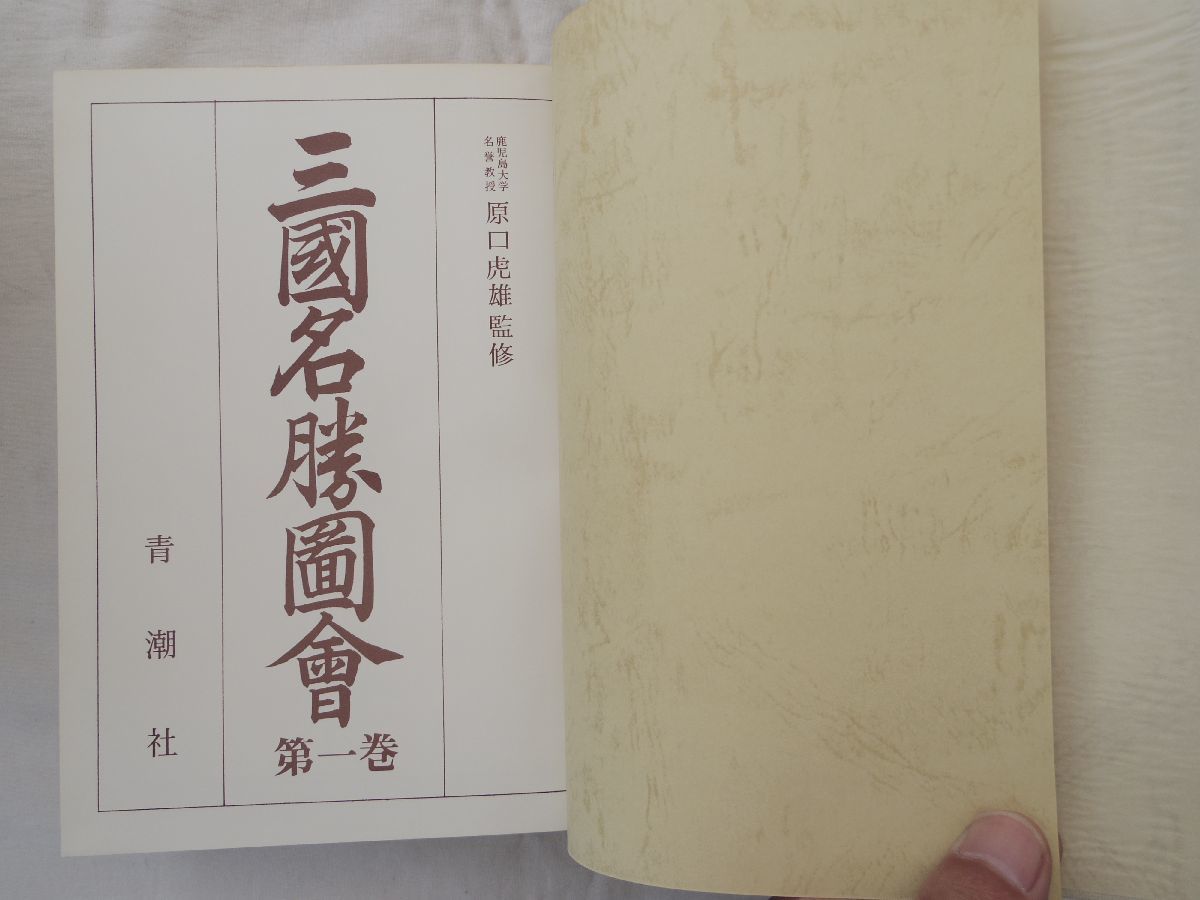 鹿児島大学
名誉教授
原口虎雄監修
三國名勝圖會
第一巻
青潮社